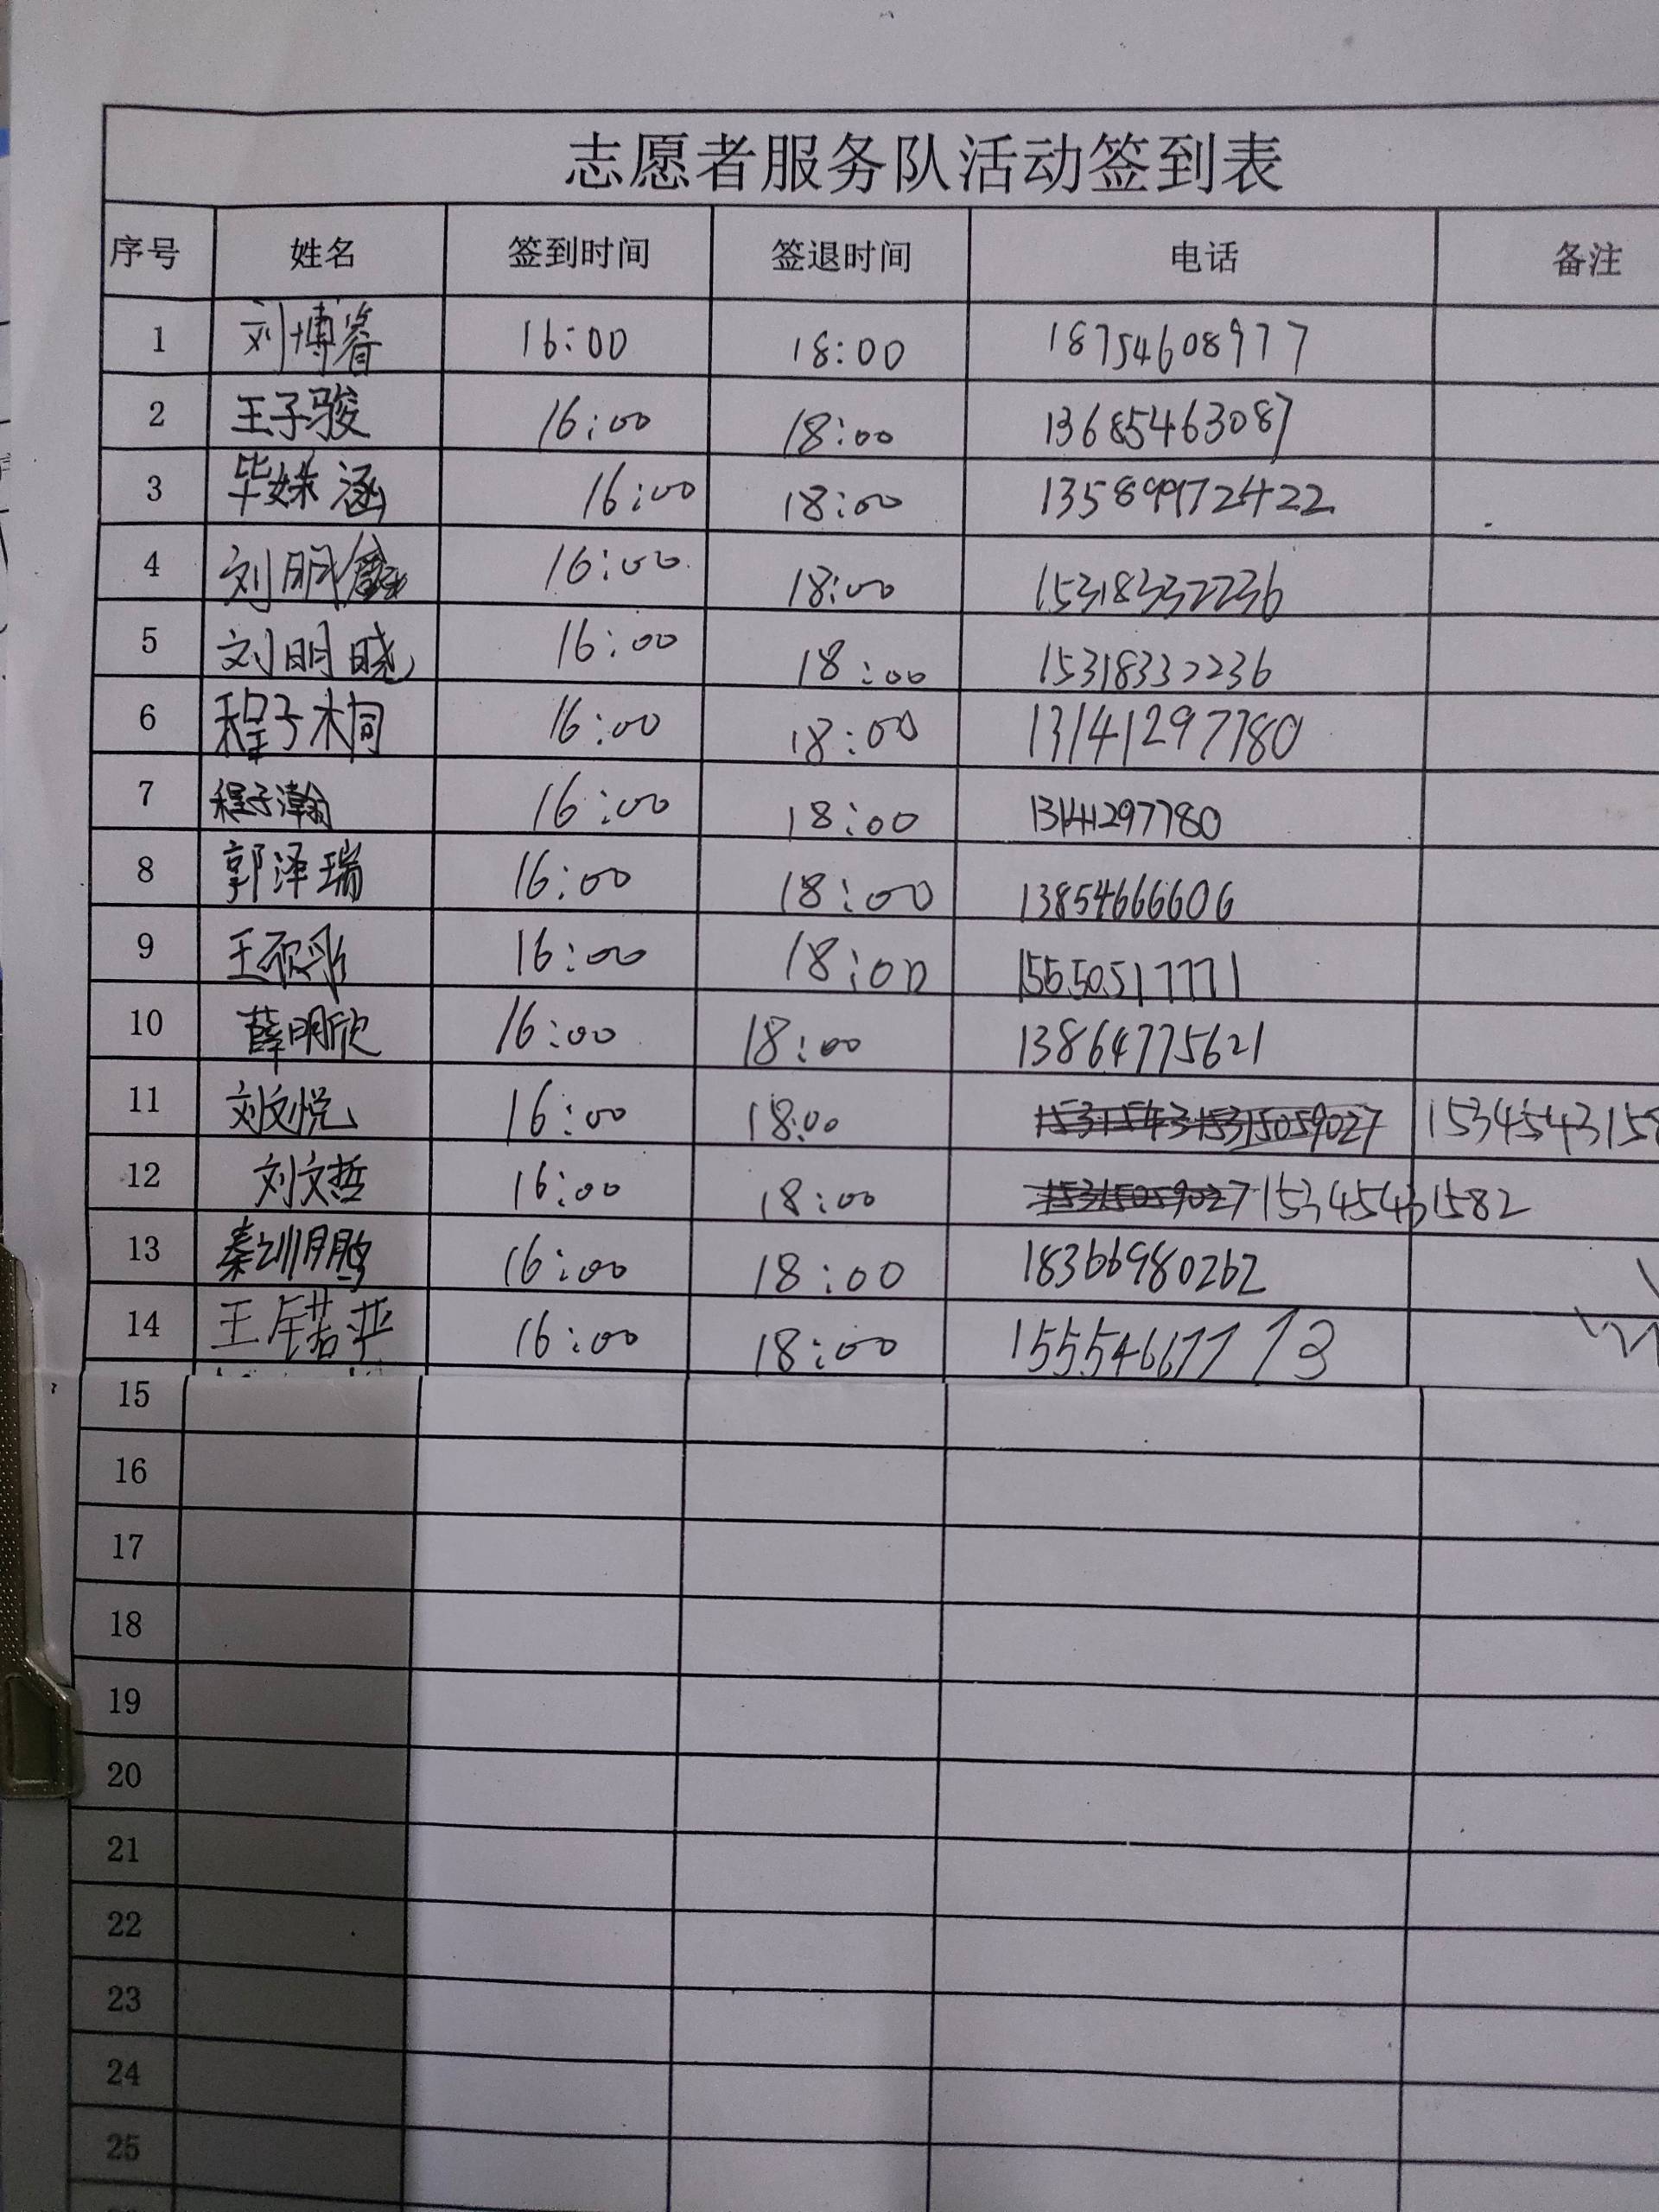 志愿者服务队活动签到表
序号 姓名 签到时间 签退时间 电话 备注
1 刘博睿 16:00 18:00 18754608977
2 王子骏 16:00 18:00 13685463087
3 毕姝涵 16:00 18:00 135899972422
4 刘明 16:00 18:00 15318332236
5 刘明晓 16:00 18:00 15318332236
6 程子桐 16:00 18:00 13141297780
7 程子瀚 16:00 18:00 13141297780
8 郭泽瑞 16:00 18:00 13854666606
9 王 16:00 18:00 15650517771
10 薛明欣 16:00 18:00 13864775621
11 刘文悦 16:00 18:00 15315059027 1534543158
12 刘文哲 16:00 18:00 15315059027 15345431582
13 秦训鹏 16:00 18:00 18366980262
14 王 若 16:00 18:00 15554661713
15
16
17
18
19
20
21
22
23
24
25